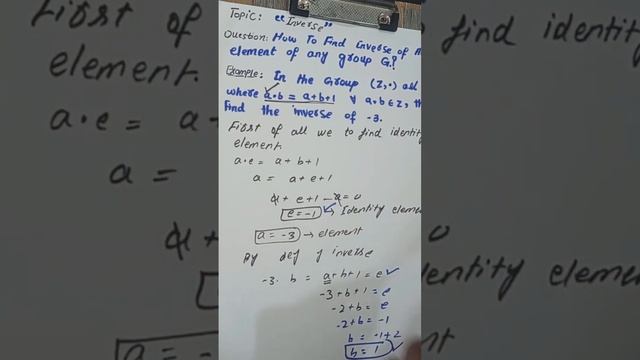 Topic: "Inverse"
Question: How To Find Inverse of
element of any group G.?
Example: In the Group (Z,•) all
where a•b = a+b+1 ∀ a,b ∈ Z, th
Find the inverse of -3.
First of all we to find identity
element.
a•e = a+b+1
a = a+e+1
a+e+1-a=0
e=-1 → Identity elemen
a = -3 → element
By def of inverse
-3• b = a+b+1 = e
-3+b+1 = e
-2+b = e
-2+b = -1
b = -1+2
b = 1